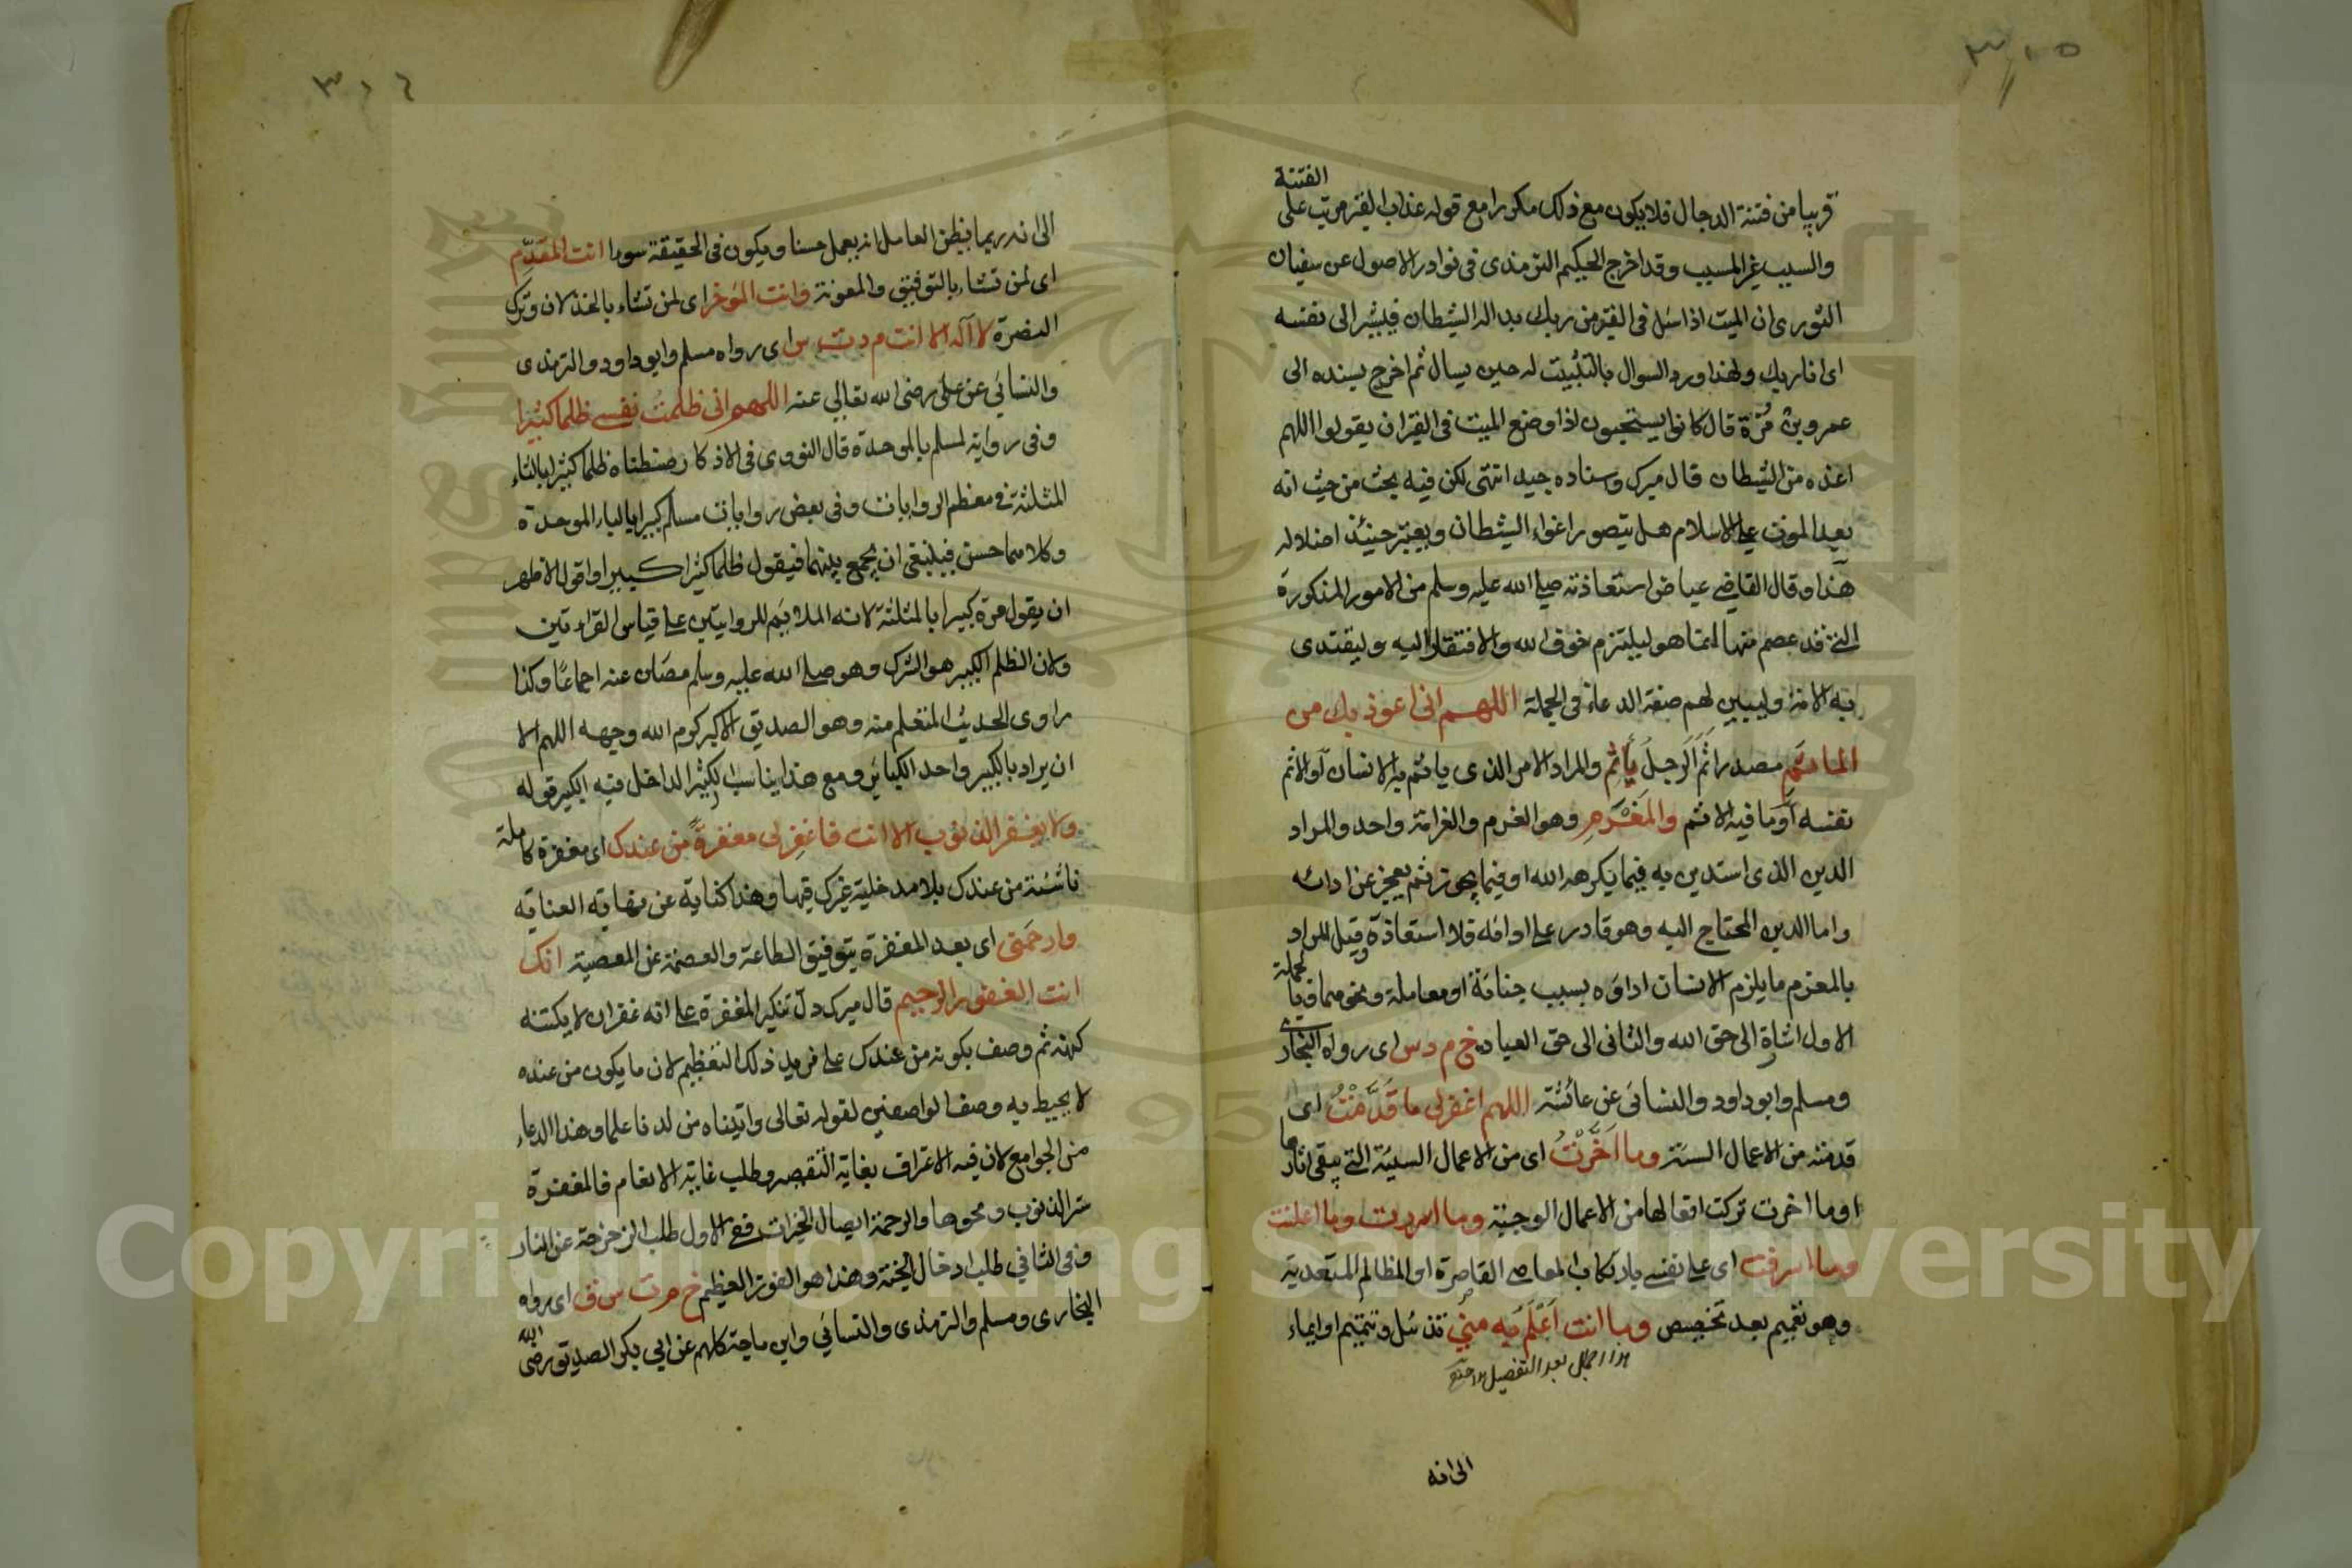 ٣٠٥
قريبا من فتنة الدجال فلا يكون مع ذلك مكررا مع قوله عذاب القبر مرتب على الفتنة
والسبب غير المسبب وقد اخرج الحكيم الترمذى فى نوادر الاصول عن سفيان
الثورى ان الميت اذا سئل فى القبر من ربك بدا له الشيطان فيشير الى نفسه
اى انا ربك ولهذا ورد السوال بالتثبيت له حين يسال ثم اخرج بسنده الى
عمرو بن مُرّة قال كانوا يستحبون اذا وضع الميت فى القبر ان يقولوا اللهم
اعذه من الشيطان قال ميرك وسناده جيد انتهى لكن فيه بحث من حيث انه
بعد الموت على الاسلام هل يتصور اغواء الشيطان ويعتبر حينئذ اضلاله
هذا وقال القاضى عياض استعاذته صلى الله عليه وسلم من الامور المذكورة
التى قد عصم منها انما هو ليلتزم خوف الله والافتقار اليه وليقتدى
به الامة وليبين لهم صفة الدعاء فى الجملة اللهم انى اعوذ بك من
الماثم مصدر اثم الرجل يأثم والمراد الامر الذى ياثم به الانسان او الاثم
نفسه او ما فيه الاثم والمَغْرَمِ وهو الغرم والغرامة واحد والمراد
الدين الذى استدين به فيما يكرهه الله او فيما يجوز ثم يعجز عن ادائه
واما الدين المحتاج اليه وهو قادر على ادائه فلا استعاذة وقيل المراد
بالمغرم ما يلزم الانسان اداؤه بسبب جناية او معاملة ونحوهما فبالجملة
الاول اشارة الى حق الله والثانى الى حق العباد خ م د س اى رواه البخارى
ومسلم وابو داود والنسائى عن عائشة اللهم اغفر لى ما قَدَّمْتُ اى
قدمته من الاعمال السيئة وما اَخَّرْتُ اى من الاعمال السيئة التى يبقى اثارها
او ما اخرت تركت افعالها من الاعمال الوجيبة وما اسررت وما اعلنت
وما اسرفت اى على نفسى بارتكاب المعاصى القاصرة او المظالم المتعدية
وهو تعميم بعد تخصيص وما انت اَعْلَمُ به مِنّى تذييل وتتميم او ايماء
هذا اجمال بعد التفصيل
الى انه
٣٠٦
الى انه ربما يظن العامل انه يعمل حسنا ويكون فى الحقيقة سوءا انت المقَدِّم
اى لمن تشاء بالتوفيق والمعونة وانت المؤخر اى لمن تشاء بالخذلان وترك
النصرة لا اله الا انت م د ت س اى رواه مسلم وابو داود والترمذى
والنسائى عن على رضى الله تعالى عنه اللهم انى ظلمتُ نفسى ظلما كثيرا
وفى رواية لمسلم بالموحدة قال النووى فى الاذكار ضبطناه ظلما كثيرا بالثاء
المثلثة فى معظم الروايات وفى بعض روايات مسلم كبيرا بالباء الموحدة
وكلاهما حسن فينبغى ان يجمع بينهما فيقول ظلما كثيرا كبيرا واقول الاظهر
ان يقول مرة كبيرا بالمثلثة لانه الملائم للروايتين على قياس القراءتين
ولان الظلم الكبير هو الشرك وهو صلى الله عليه وسلم مصان عنه اجماعًا وكذا
راوى الحديث المتعلم منه وهو الصديق الاكبر كرم الله وجهه اللهم الا
ان يراد بالكبير واحد الكبائر ومع هذا يناسب لكثير الداخل فيه الكبير قوله
ولا يغفر الذنوب الا انت فاغفر لى مغفرةً من عندك اى مغفرة كاملة
ناشئة من عندك بلا مدخلية غيرك فيها وهذا كناية عن نهاية العناية
وارحمنى اى بعد المغفرة بتوفيق الطاعة والعصمة عن المعصية انك
انت الغفور الرحيم قال ميرك دل تنكير المغفرة على انه غفران لا يكتنه
كنهه ثم وصف بكونه من عندك على مزيد ذلك التعظيم لان ما يكون من عنده
لا يحيط به وصف الواصفين لقوله تعالى واتيناه من لدنا علما وهذا الدعاء
من الجوامع لان فيه الاعتراف بغاية التقصير وطلب غاية الانعام فالمغفرة
ستر الذنوب ومحوها والرحمة ايصال الخيرات ففى الاول طلب الزحزحة عن النار
وفى الثانى طلب ادخال الجنة وهذا هو الفوز العظيم خ م ت س ق اى رواه
البخارى ومسلم والترمذى والنسائى وابن ماجة كلهم عن ابى بكر الصديق رضى الله
Copyright © King Saud University